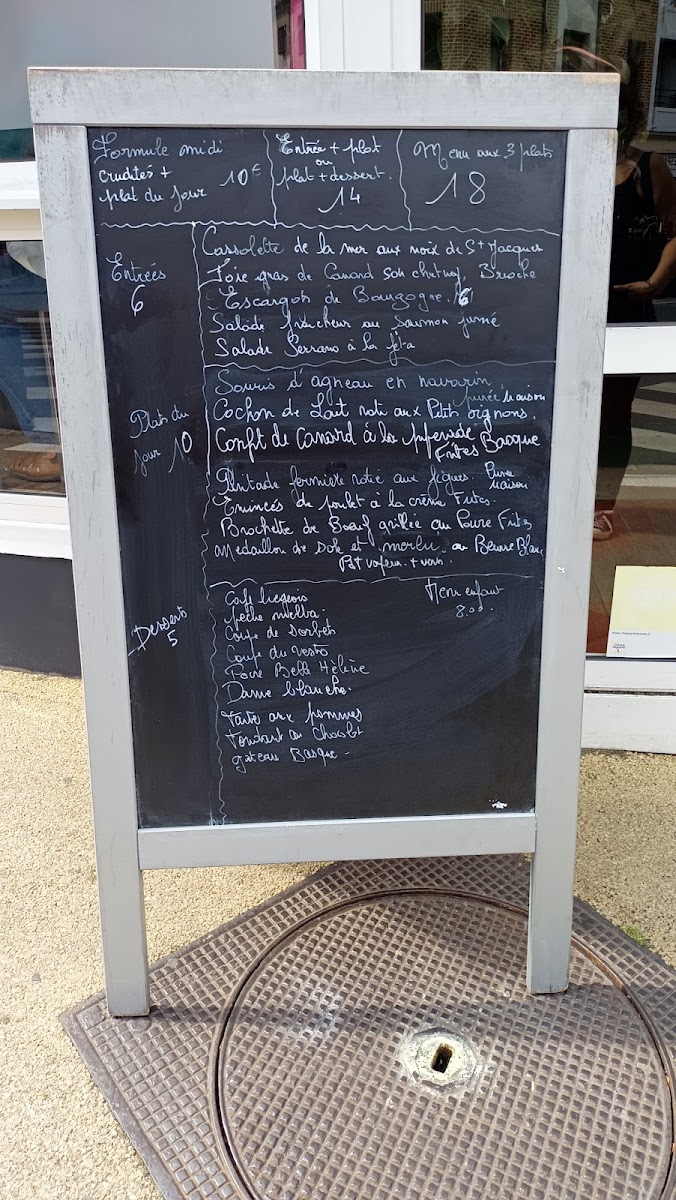 Formule midi
crudités +
plat du jour 10€
Entrée + plat
ou
plat + dessert.
14
Menu aux 3 plats
18
Entrées
6
Cassolette de la mer aux noix de St Jacques
Foie gras de Canard son chutney, Brioche
Escargots de Bourgogne. 6
Salade fraicheur au saumon fumé
Salade Serrano à la féta
Plats du
jour 10
Souris d'agneau en navarin, purée Maison
Cochon de Lait roti aux Petits oignons.
Confit de Canard à la piperade Basque
Frites
Pintade fermière rotie aux figues. Purée
Maison
Emincés de poulet à la crème Frites.
Brochette de Boeuf grillée au Poivre Frites
Medaillon de sole et merlu au Beurre Blanc
Pdt vapeur. + verts.
Desserts
5
Café liegeois
pêche melba.
Coupe de sorbets
Coupe du resto
Poire Belle Hélène
Dame blanche.
Tarte aux pommes
Fondant au Chocolat
gateau Basque -
Menu enfant
8.00